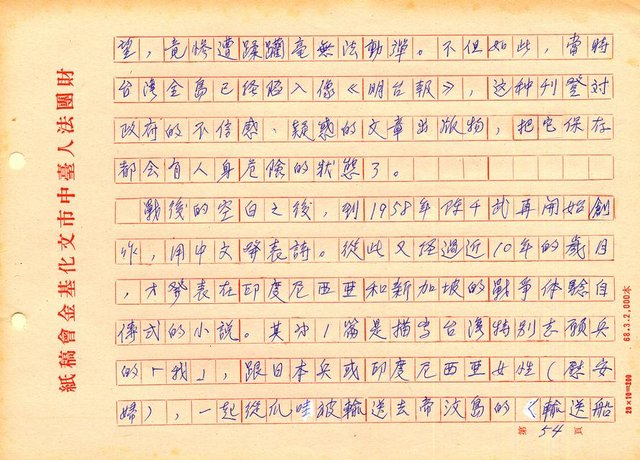 望，竟慘遭蹂躪毫無法動彈。不但如此，當時
台湾全島已经陷入像《明台報》，这种刊登对
政府的不信感、疑惑的文章出版物，把它保存
都会有人身危険的狀態了。
戰後的空白之後，到1958年陳千武再開始創
作，用中文發表詩。從此又经過近10年的歲月
，才發表在印度尼西亜和新加坡的戰争体驗自
傳式的小說。其中1篇是描写台湾特別志願兵
的「我」，跟日本兵或印度尼西亜女性（慰安
婦），一起從爪哇被輸送去帝汶島的《輸送船
第 54 頁
財團法人臺中市文化基金會稿紙
68.3.2,000本
20×10＝200